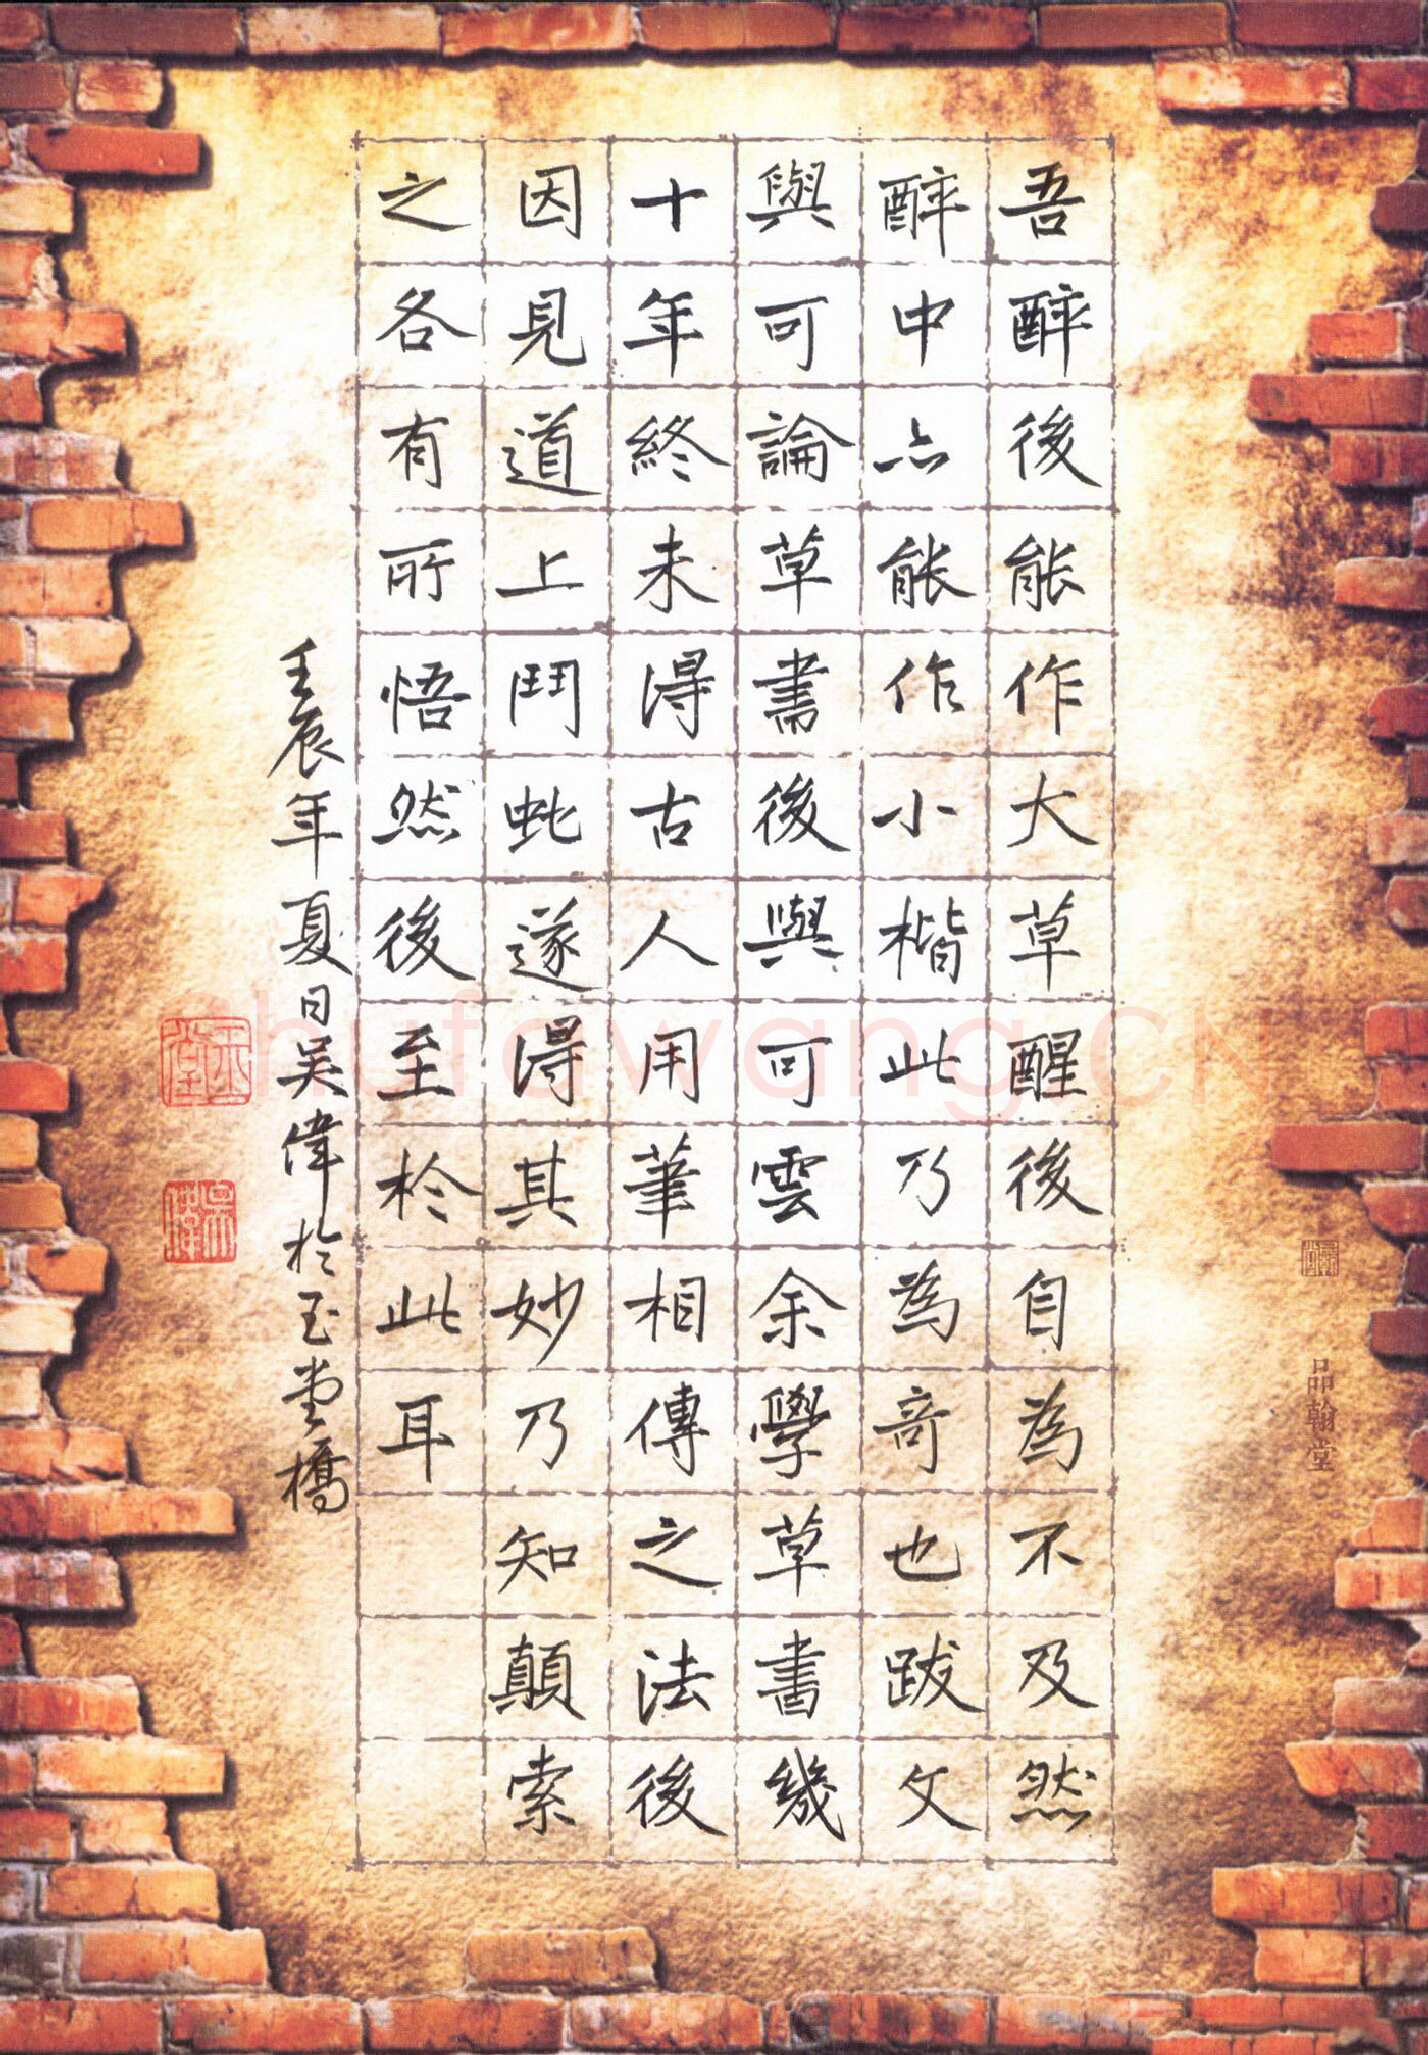 吾醉後能作大草醒後自為不及然
醉中亦能作小楷此乃為奇也跋文
與可論草書後與可雲余學草書幾
十年終未得古人用筆相傳之法後
因見道上鬥虵遂得其妙乃知顛索
之各有所悟然後至於此耳
壬辰年夏日吳偉於玉堂橋
玉堂
吳偉
品翰堂
shufawang.CN